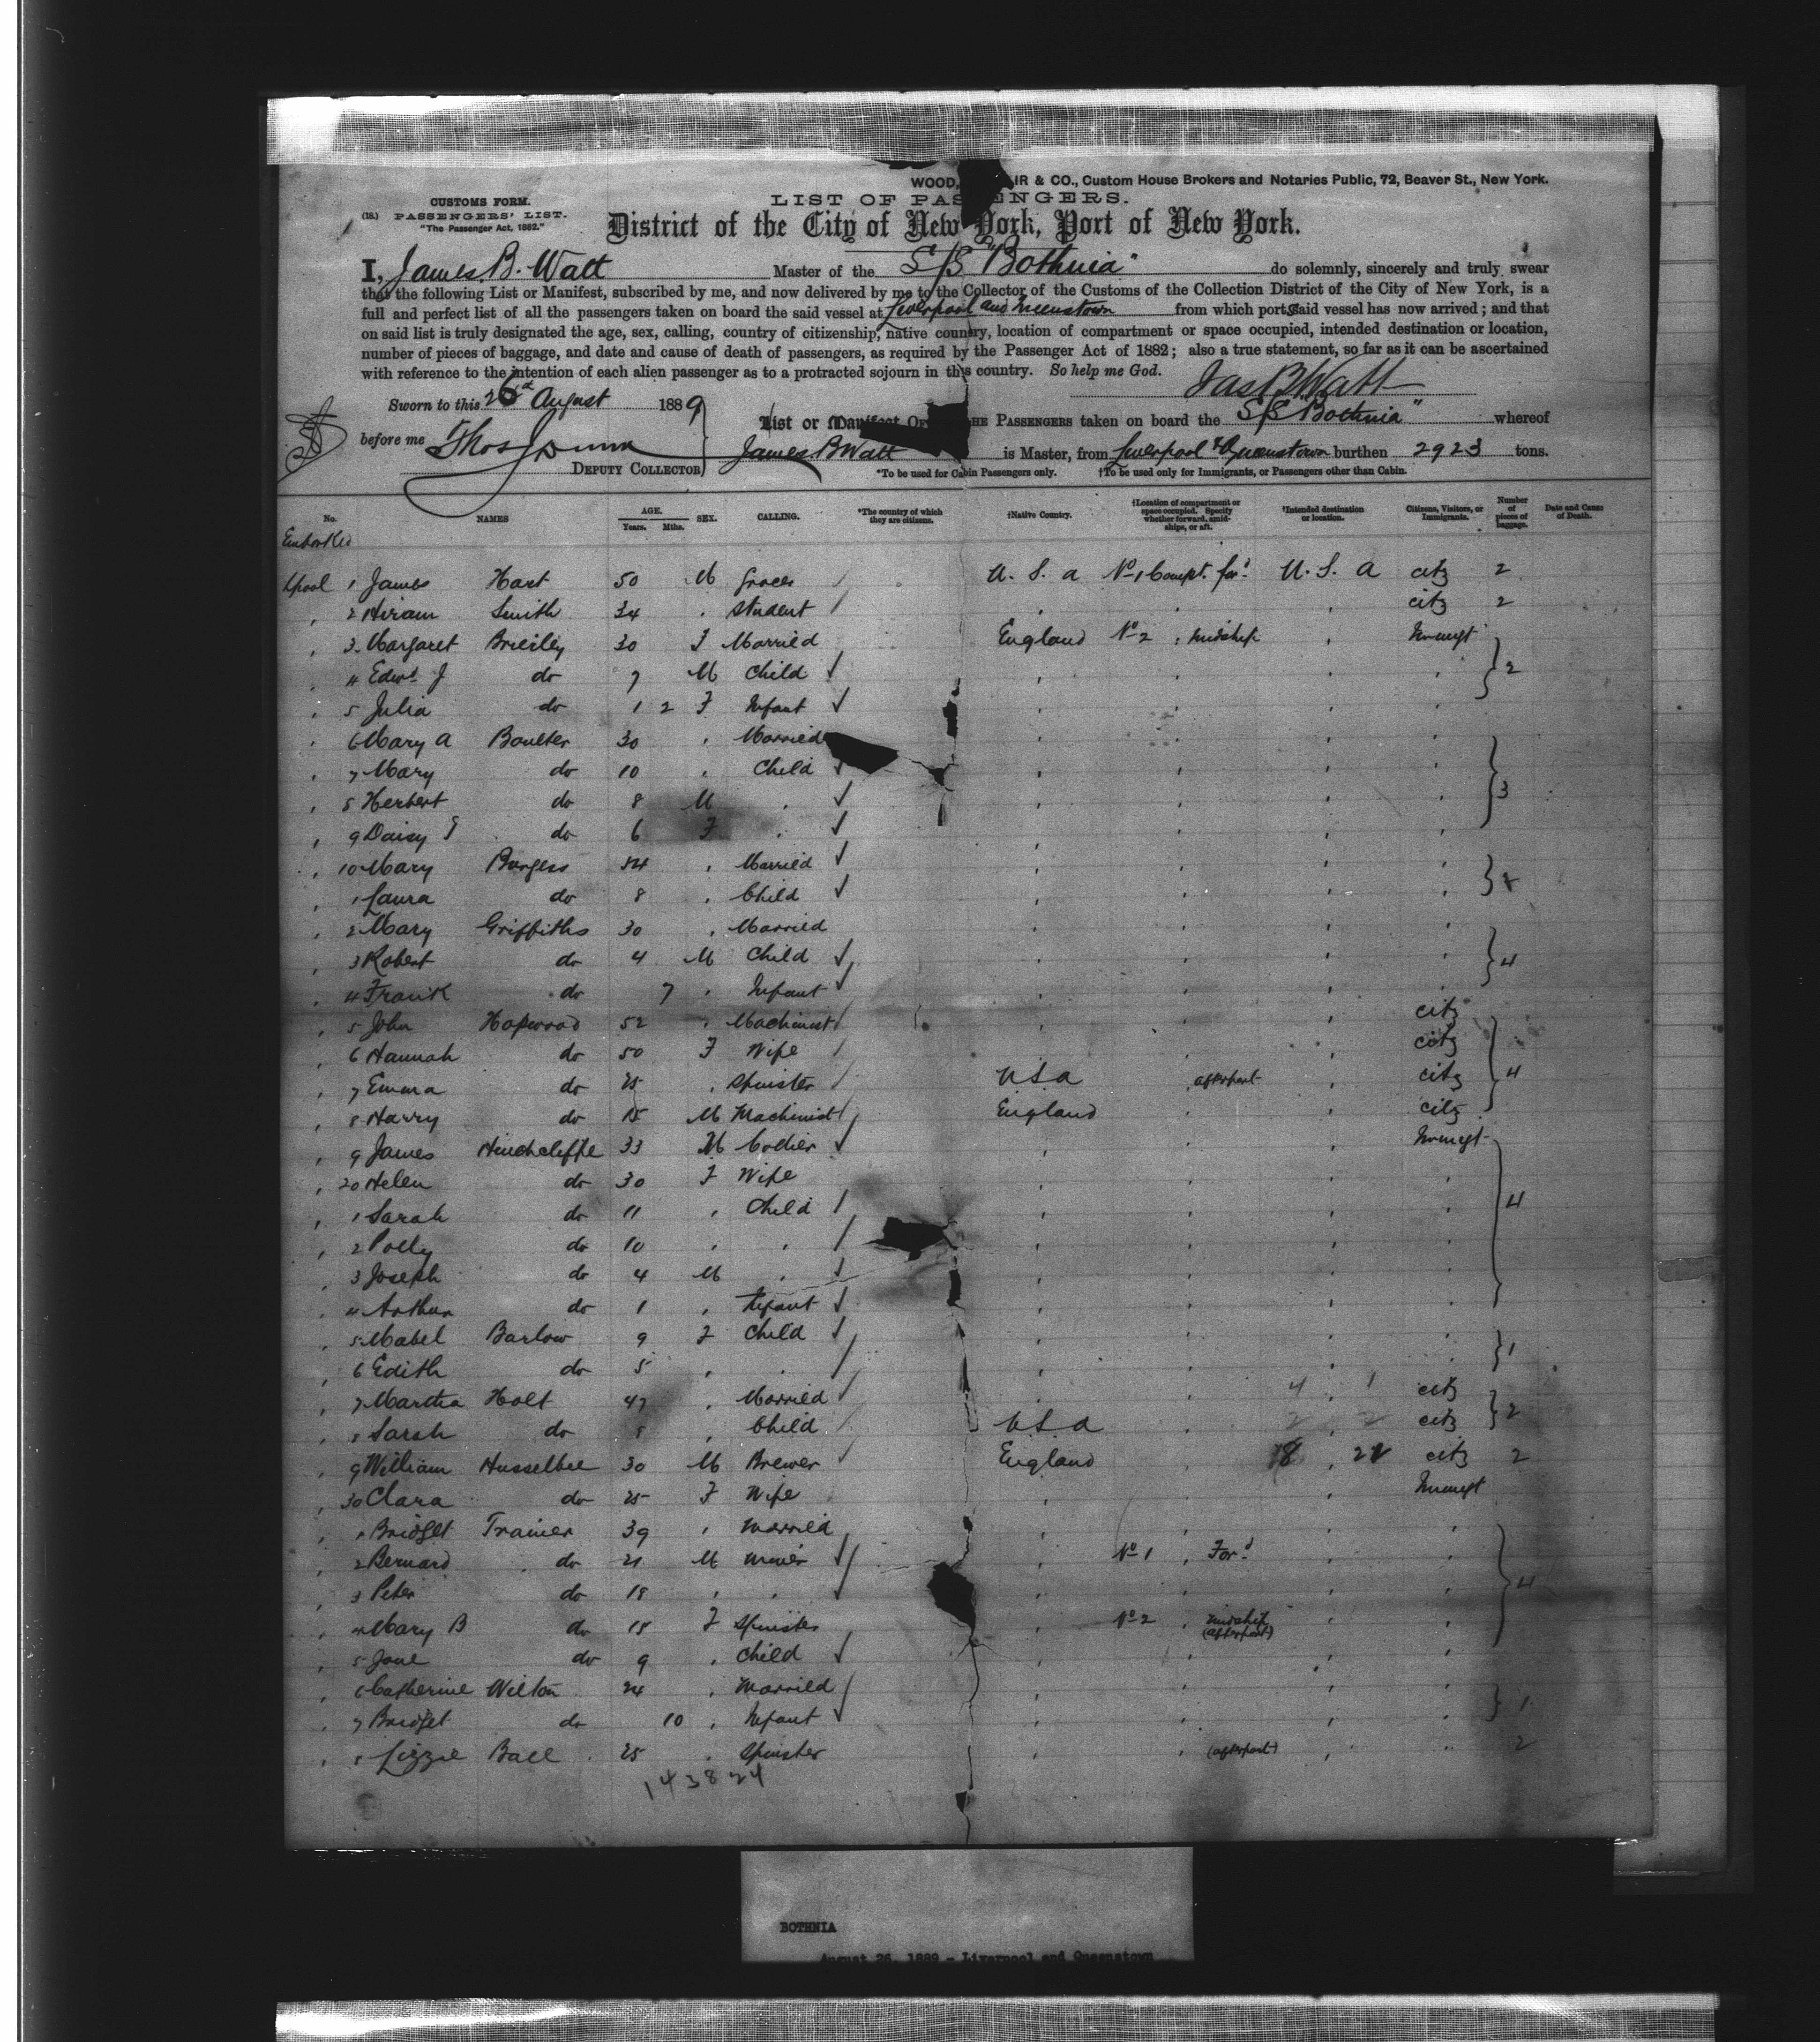 WOOD, IR & CO., Custom House Brokers and Notaries Public, 72, Beaver St., New York.
CUSTOMS FORM.
LIST OF PAS ENGERS.
(18.) PASSENGERS' LIST.
"The Passenger Act, 1882."
District of the City of New York, Port of New York.
I, James B. Watt Master of the S/S "Bothnia" do solemnly, sincerely and truly swear
that the following List or Manifest, subscribed by me, and now delivered by me to the Collector of the Customs of the Collection District of the City of New York, is a
full and perfect list of all the passengers taken on board the said vessel at Liverpool and Queenstown from which ports said vessel has now arrived; and that
on said list is truly designated the age, sex, calling, country of citizenship, native country, location of compartment or space occupied, intended destination or location,
number of pieces of baggage, and date and cause of death of passengers, as required by the Passenger Act of 1882; also a true statement, so far as it can be ascertained
with reference to the intention of each alien passenger as to a protracted sojourn in this country. So help me God.
Jas B Watt
Sworn to this 26th August 1889
List or Manifest OF HE PASSENGERS taken on board the S/S "Bothnia" whereof
before me Thos J Dunn
James B Watt is Master, from Liverpool & Queenstown burthen 2923 tons.
DEPUTY COLLECTOR
*To be used for Cabin Passengers only. †To be used only for Immigrants, or Passengers other than Cabin.
No. NAMES AGE. Years. Mths. SEX. CALLING. *The country of which they are citizens. †Native Country. †Location of compartment or space occupied. Specify whether forward, amidships, or aft. †Intended destination or location. Citizens, Visitors, or Immigrants. Number of pieces of baggage. Date and Cause of Death.
Embarked
Lpool 1 James Hart 50 M Grocer U. S. a No 1 Compt. for'd U. S. A citz 2
2 Hiram Smith 34 Student citz 2
3 Margaret Brierley 30 F Married England No 2 midship Immgt
4 Edwd J do 7 M Child 2
5 Julia do 1 2 F Infant
6 Mary A Boulter 30 Married
7 Mary do 10 Child
8 Herbert do 8 M 3
9 Daisy do 6 F
10 Mary Burgess Married
1 Laura do 8 Child 2
2 Mary Griffiths 30 Married
3 Robert do 4 M Child 4
4 Frank do 7 Infant
5 John Hopwood 52 Machinist citz
6 Hannah do 50 F Wife citz
7 Emma do 25 Spinster U S a afterpart citz 4
8 Harry do 15 M Machinist England citz
9 James Hinchcliffe 33 M Collier Immgt
20 Helen do 30 F Wife
1 Sarah do 11 Child 4
2 Polly do 10
3 Joseph do 4 M
4 Arthur do 1 Infant
5 Mabel Barlow 9 F Child
6 Edith do 5 1
7 Martha Holt 47 Married 4 1 citz
8 Sarah do 8 Child U S a 2 2 citz 2
9 William Husselbee 30 M Brewer England 18 22 citz 2
30 Clara do 25 F Wife Immgt
1 Bridget Trainer 39 Married
2 Bernard do 21 M Miner No 1 For'd
3 Peter do 18 4
4 Mary B do 18 F Spinster No 2 midship (afterpart)
5 Jane do 9 Child
6 Catherine Wilton 24 Married
7 Bridget do 10 Infant 1
8 Lizzie Ball 25 Spinster (afterpart) 2
143824
BOTHNIA
August 26, 1889 - Liverpool and Queenstown